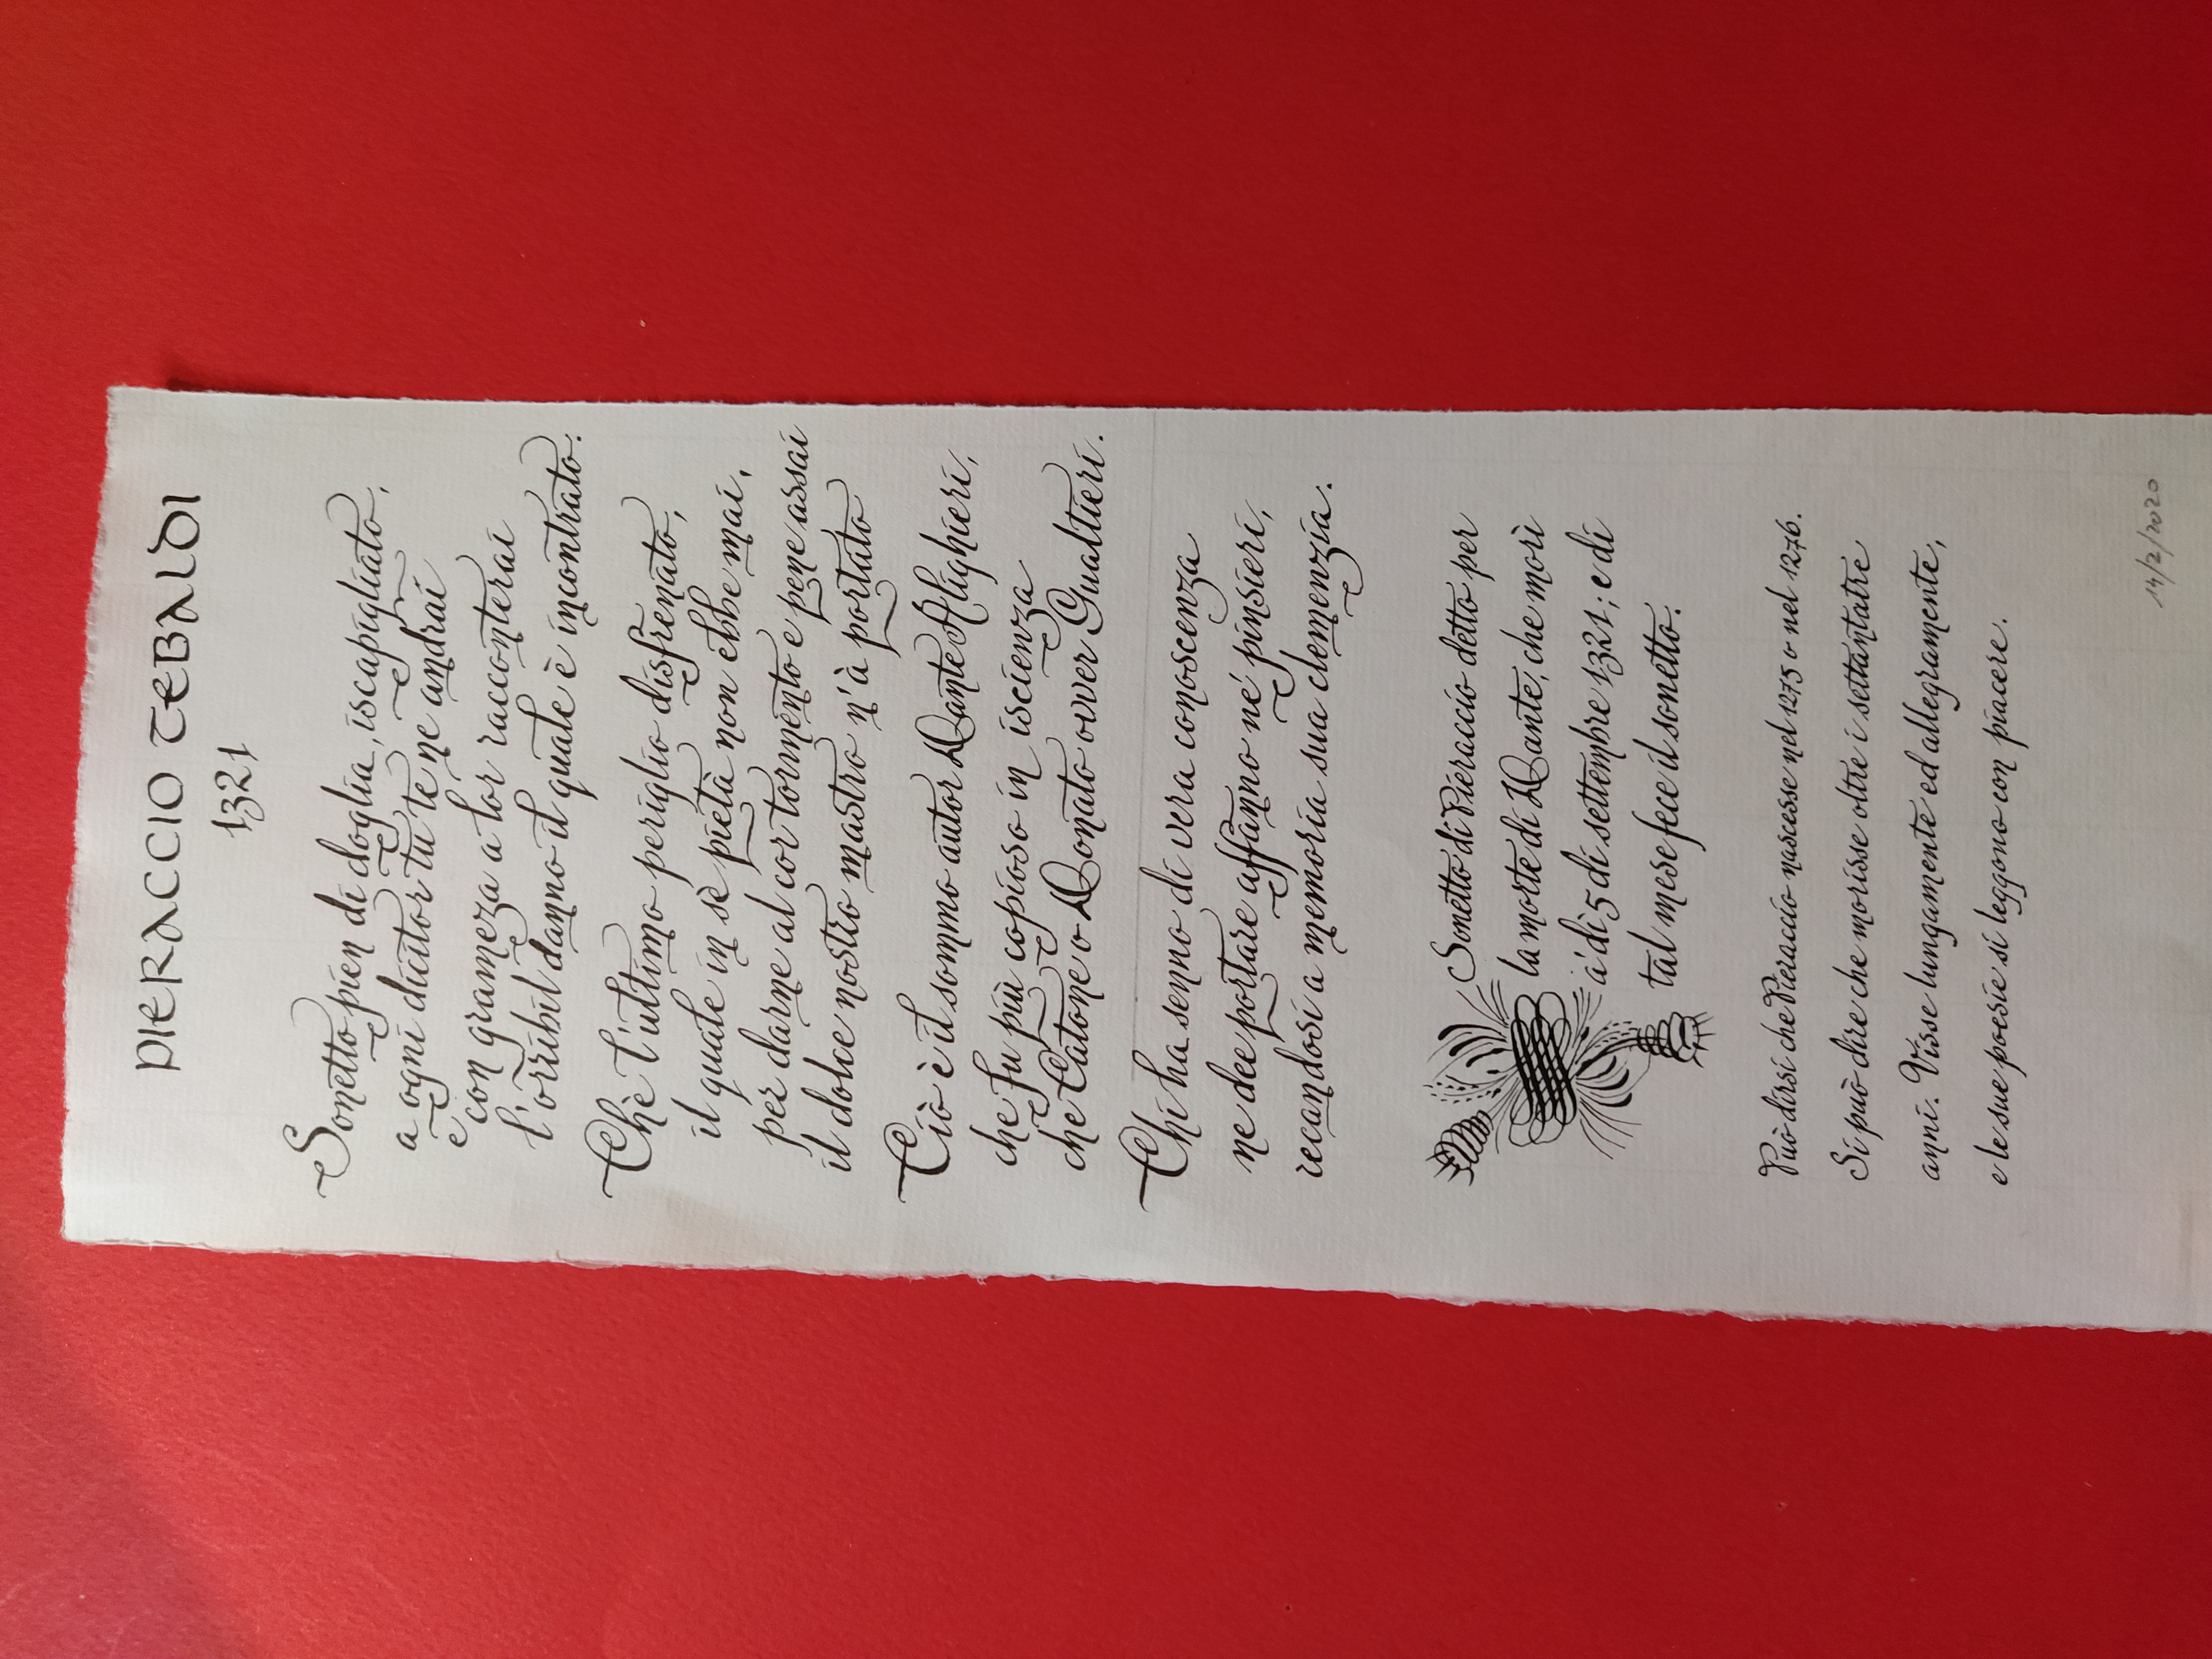 PIERACCIO TEBALDI
1321
Sonetto pien di doglia, iscapigliato,
a ogni dicitor tu te ne andrai
e con grameza a lor racconterai
l'orribil danno il quale è incontrato.
Chè l'ultimo periglio disfrenato,
il quale in sè pietà non ebbe mai,
per darne al cor tormento e pene assai
il dolce nostro mastro n'à portato
Ciò è il sommo autor Dante Alighieri,
che fu più copioso in iscienza
che Catone o Donato over Gualtieri.
Chi ha senno di vera conoscenza
ne dee portare affanno né pinsieri,
recandosi a memoria sua clemenzia.
Sonetto di Pieraccio detto per
la morte di Dante, che morì
a' dì 5 di settembre 1321; e di
tal mese fece il sonetto.
Può dirsi che Pieraccio nascesse nel 1275 o nel 1276.
Si può dire che morisse oltre i settantatre
anni. Visse lungamente ed allegramente,
e le sue poesie si leggono con piacere.
14/2/2020